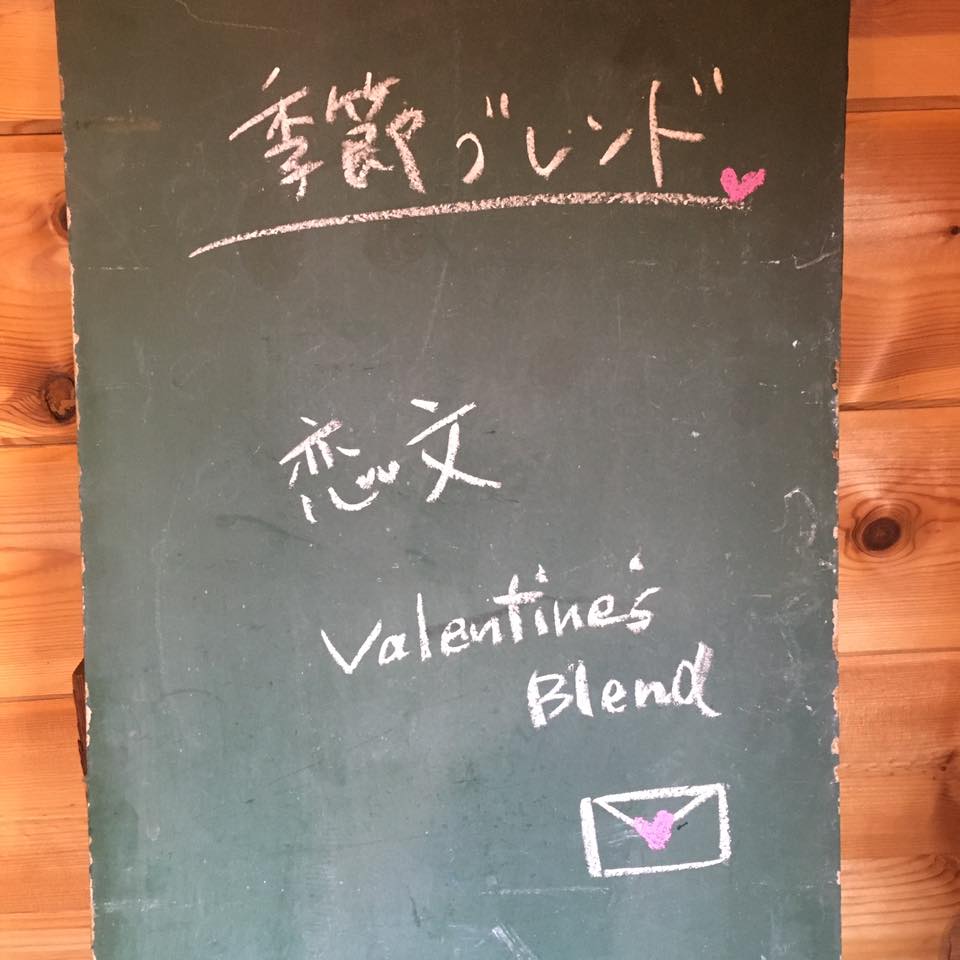 季節ブレンド
恋文
Valentine's
Blend